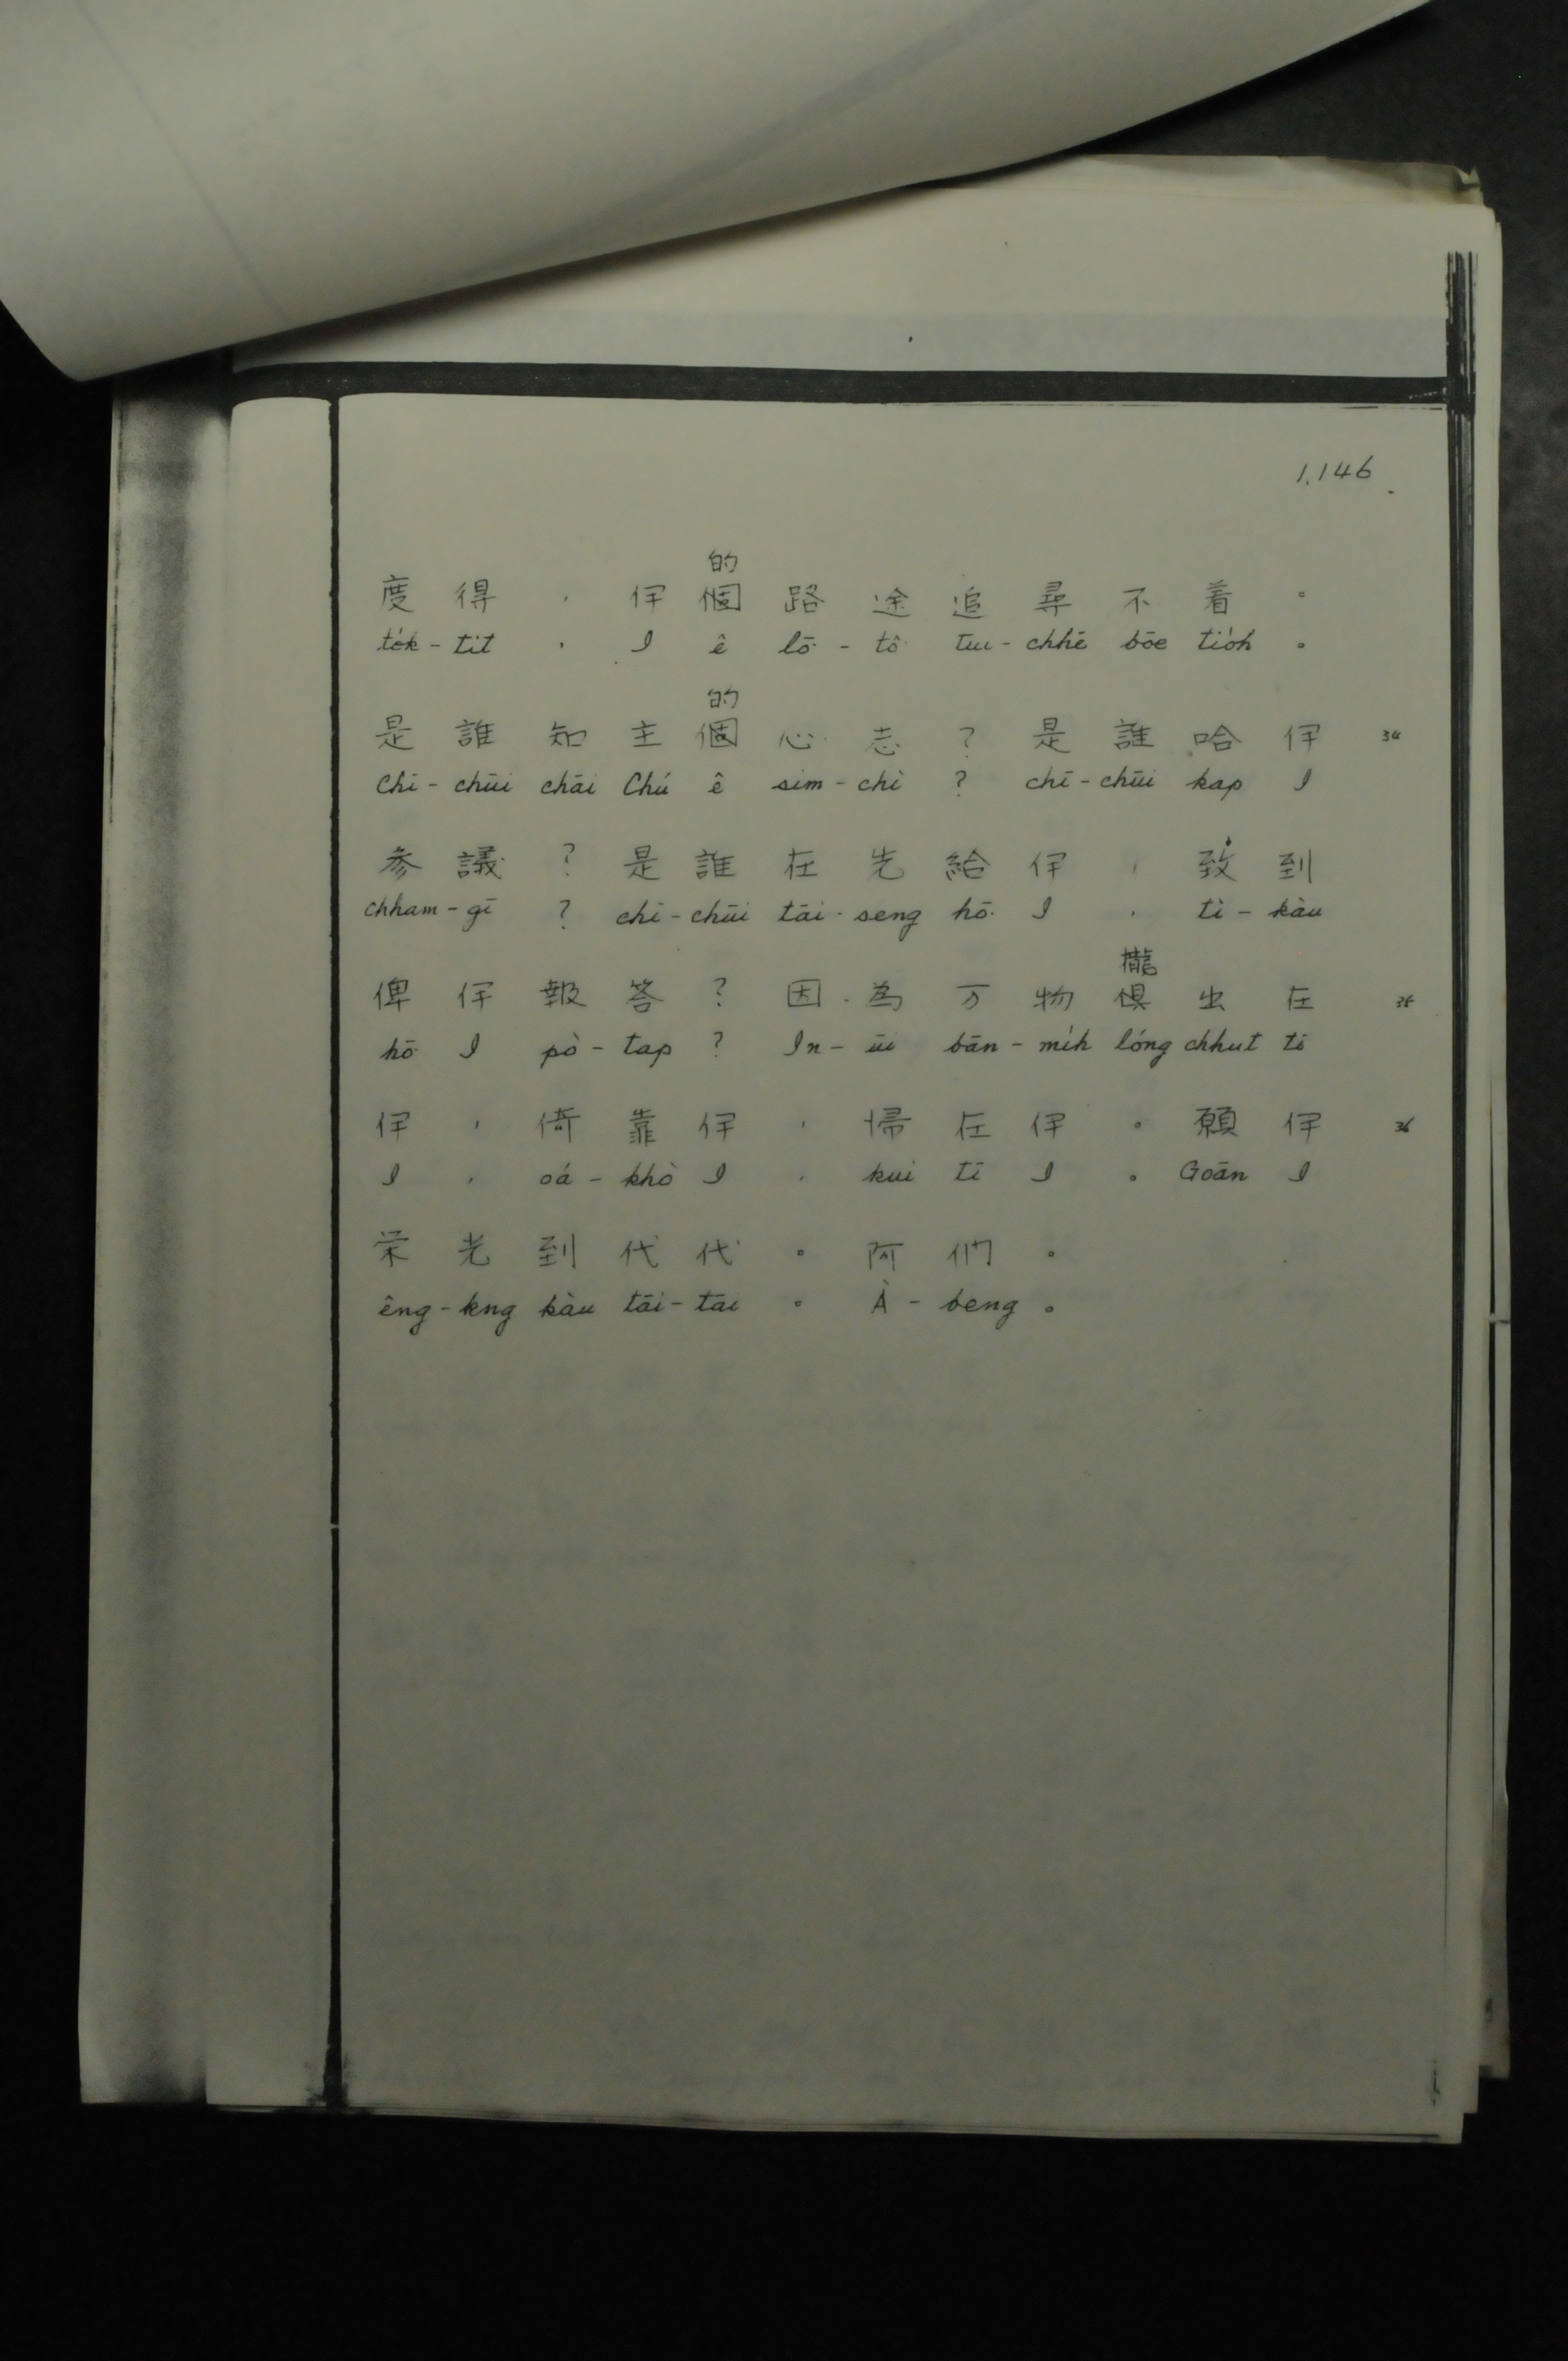 1.146
的
度得，伊個路途追尋不着。
to̍k-tit，I ê lō͘-tô͘ tui-chhē bōe tio̍h。
的
是誰知主個心志？是誰哈伊 34
Chī-chūi chāi Chú ê sim-chì？chī-chūi kap I
参議？是誰在先給伊，致到
chham-gī？chī-chūi tāi-seng hō͘ I，tì-kàu
攏
俾伊報答？因為万物俱出在 35
hō͘ I pò-tap？In-ūi bān-mi̍h lóng chhut tī
伊，倚靠伊，帰在伊。願伊 36
I，oá-khò I，kui tī I。Goān I
栄光到代代。阿們。
êng-kng kàu tāi-tāi。À-beng。